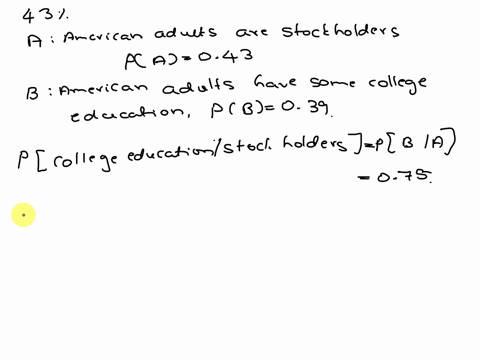 43%.
A : American adults are stockholders
P(A) = 0.43
B : American adults have some college
education, P(B) = 0.39.
P[college education/stock holders] = P[B/A]
= 0.75.